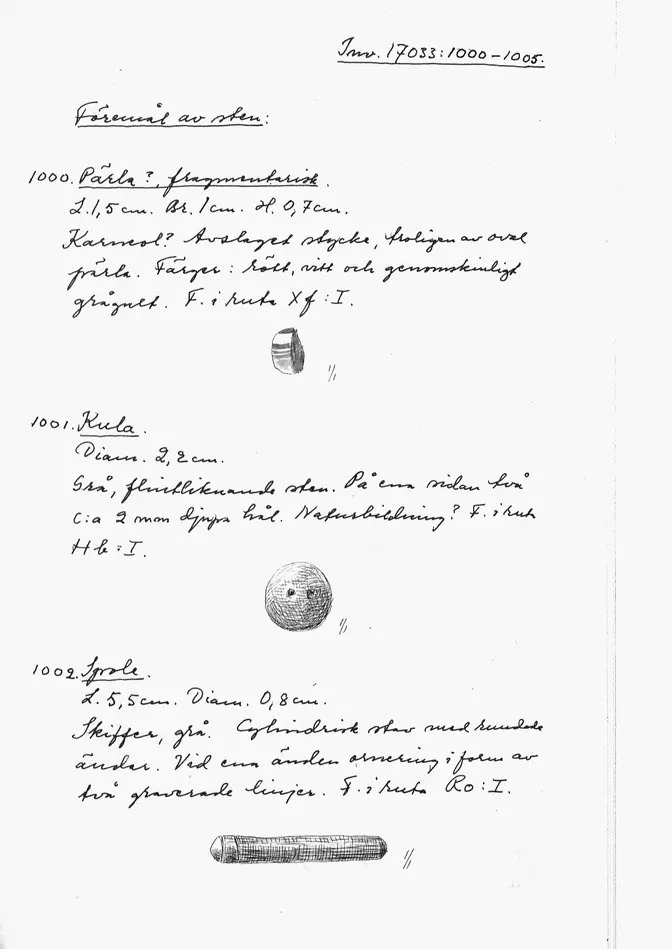 Inv. 17033:1000–1005.
Föremål av sten:
1000. Pärla?, fragmentarisk.
L. 1,5 cm. Br. 1 cm. H. 0,7 cm.
Karneol? Avslaget stycke, troligen av oval
pärla. Färger: rött, vitt och genomskinligt
grågult. F. i ruta Xf:I.
1/1
1001. Kula.
Diam. 2,2 cm.
Grå, flintliknande sten. På ena sidan två
c:a 2 mm djupa hål. Naturbildning? F. i ruta
Hb:I.
1/1
1002. Spole.
L. 5,5 cm. Diam. 0,8 cm.
Skiffer, grå. Cylindrisk stav med rundade
ändar. Vid ena änden ornering i form av
två graverade linjer. F. i ruta Ro:I.
1/1